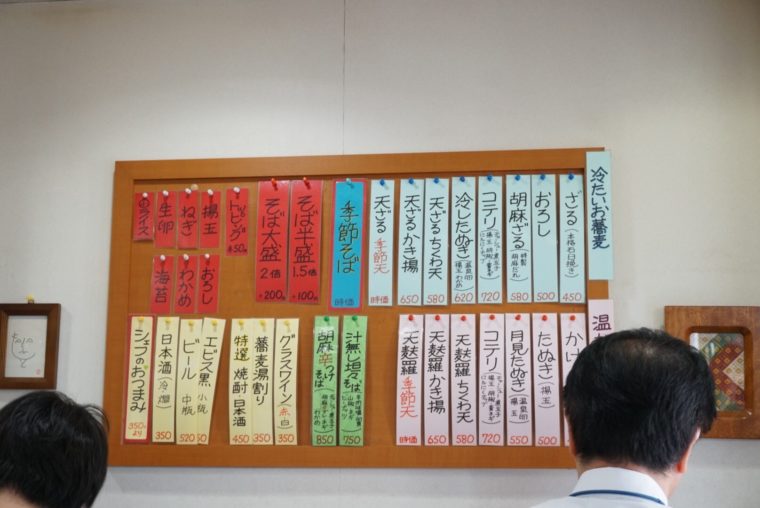 冷たいお蕎麦
ざる（本格石臼挽き） 450
おろし 500
胡麻ざる（特製胡麻だれ） 580
コテリ 720
冷したぬき 620
天ざるちくわ天 580
天ざるかき揚 650
天ざる季節天 時価
季節そば 時価
そば半盛 1.5倍 +100円
そば大盛 2倍 +200円
トッピング 各50
揚玉
ねぎ
生卵
のライス
おろし
わかめ
海苔
温
かけ
たぬき（揚玉） 500
月見たぬき 550
コテリ 720
天麩羅ちくわ天 580
天麩羅かき揚 650
天麩羅季節天 時価
汁無し坦々そば 750
胡麻辛つけそば 850
グラスワイン（赤白） 350
蕎麦湯割り 350
特選焼酎日本酒 450
エビス黒 小瓶
ビール 中瓶 520
日本酒（冷燗） 350
シェフのおつまみ 350より